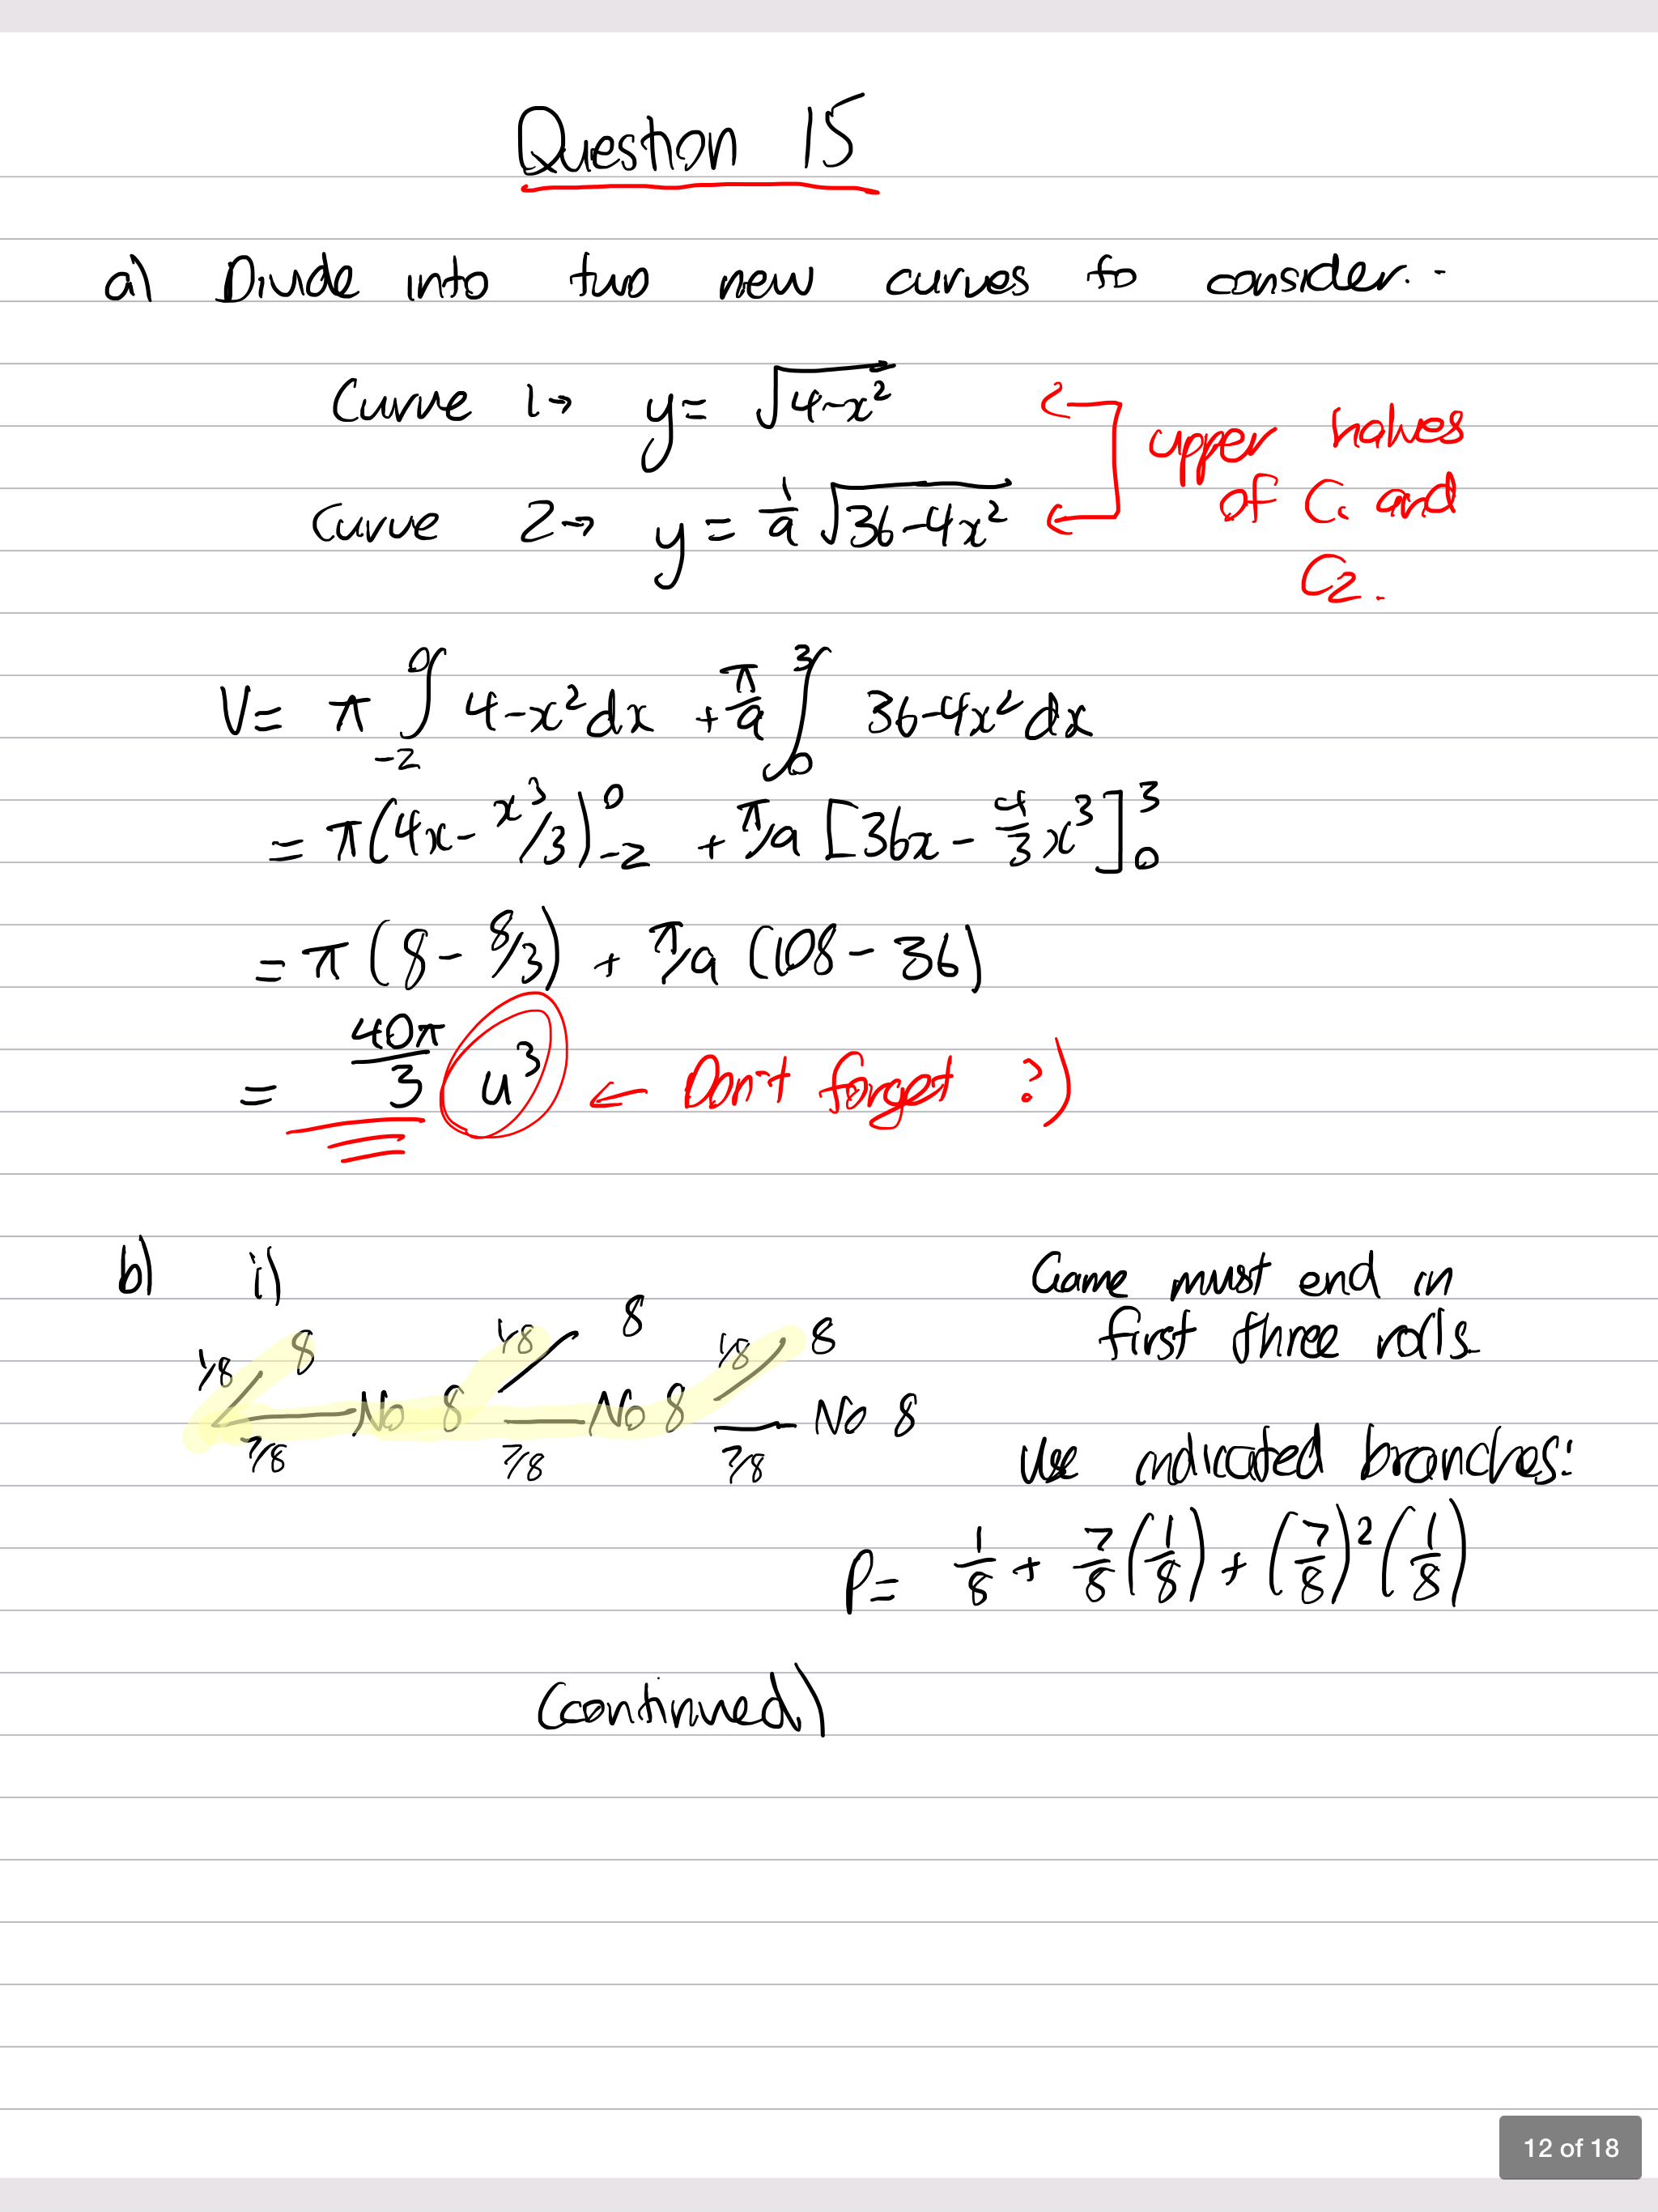 Question 15
a) Divide into two new curves to consider..
Curve 1→ y= √4-x²
curve 2→ y= 1/9 √36-4x²
upper halves
of C₁ and
C₂.
V= π ∫₋₂⁰ 4-x² dx + π/9 ∫₀³ 36-4x² dx
= π(4x - x³/3)₋₂⁰ + π/9 [36x - 4/3 x³]₀³
= π (8 - 8/3) + π/9 (108 - 36)
= 40π/3 u³ ← Don't forget :)
b) i)
Game must end in
first three rolls.
1/8 8 1/8 8 1/8 8
No 8 No 8 No 8
7/8 7/8 7/8
Use indicated branches:
P= 1/8 + 7/8 (1/8) + (7/8)² (1/8)
(continued)
12 of 18